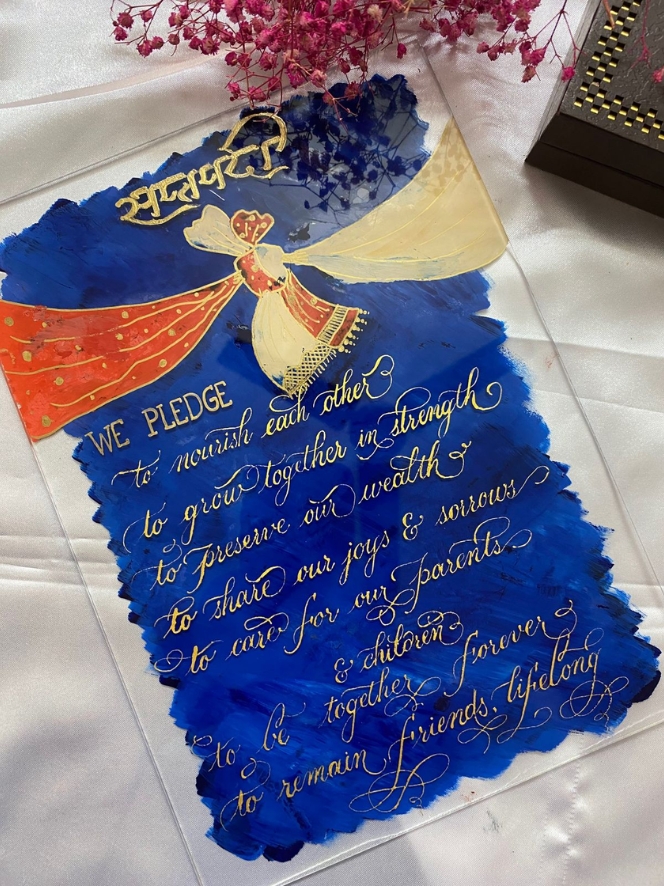 सप्तपदी
WE PLEDGE
to nourish each other
to grow together in strength
to preserve our wealth
to share our joys & sorrows
to care for our parents
& children
to be together forever
to remain friends, lifelong